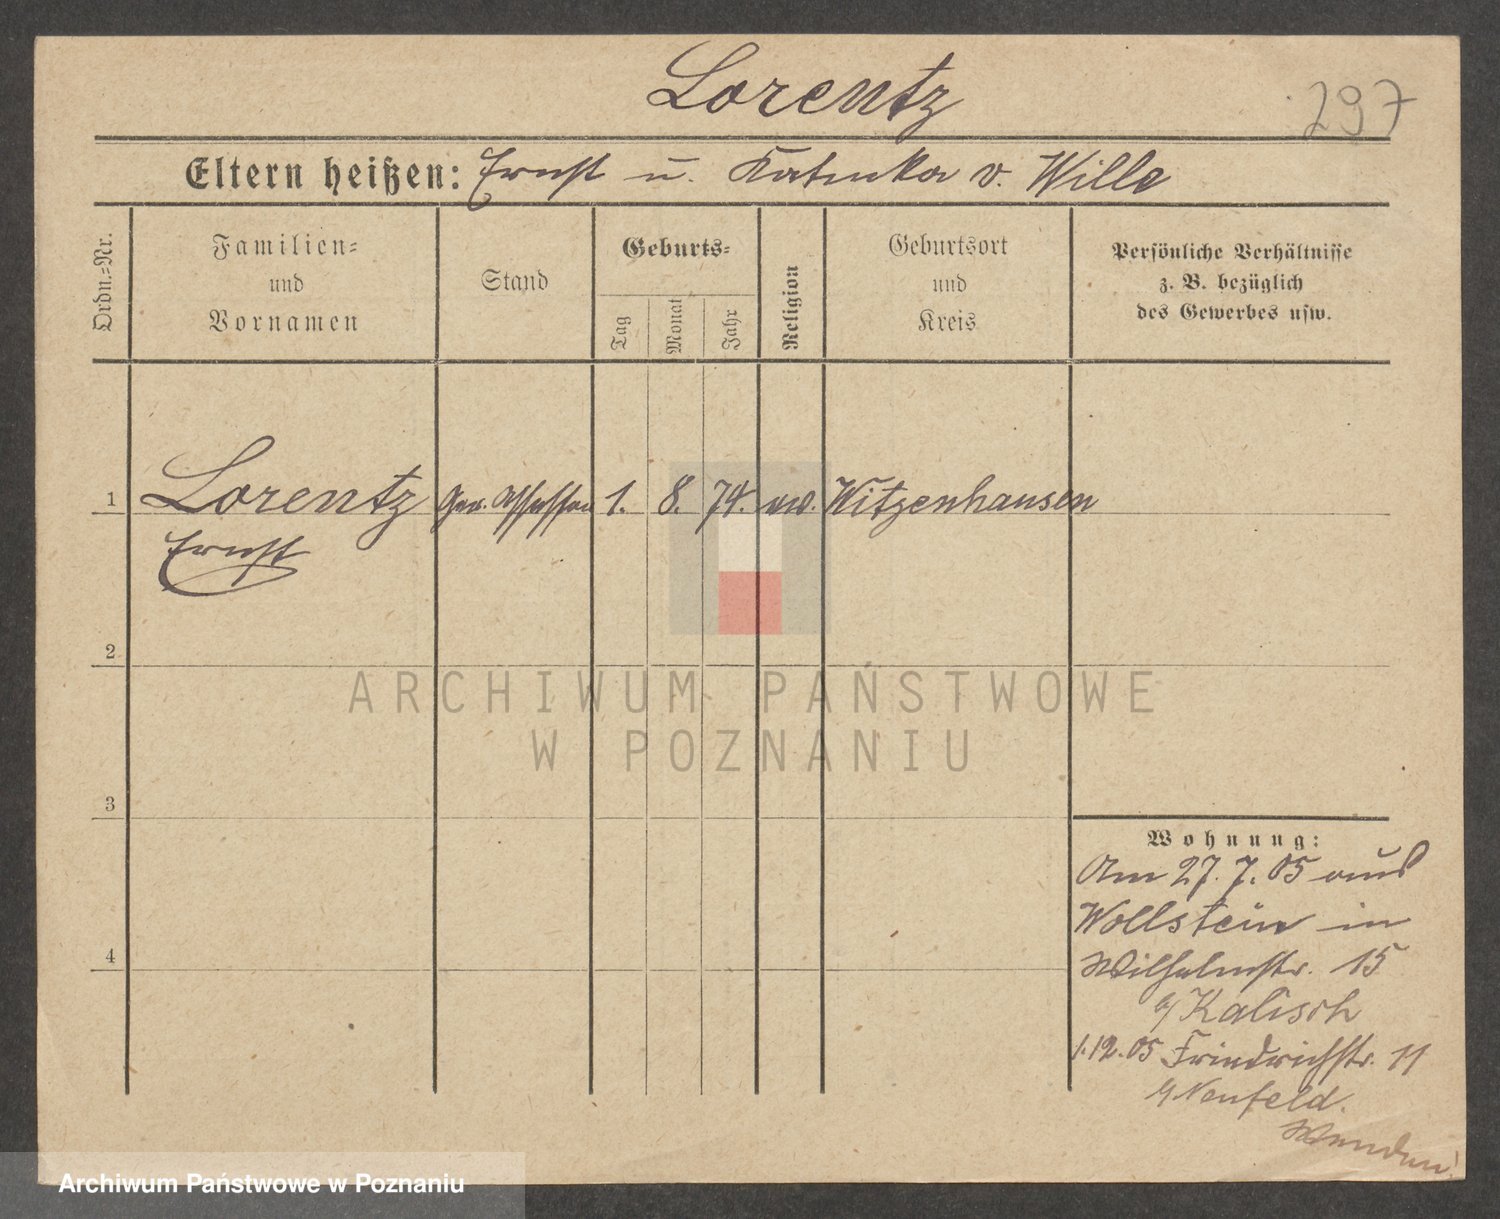 Lorentz
297
Eltern heißen: Ernst u. Katinka v. Wille
Ordn.=Nr.
Familien=
und
Vornamen
Stand
Geburts=
Tag
Monat
Jahr
Religion
Geburtsort
und
Kreis
Persönliche Verhältnisse
z. B. bezüglich
des Gewerbes usw.
1 Lorentz Ger. Assessor 1. 8. 74. ev. Witzenhausen
Ernst
2
3
4
ARCHIWUM PAŃSTWOWE
W POZNANIU
Wohnung:
Am 27. 7. 05 aus
Wollstein in
Wilhelmstr. 15
b/ Kalisch
1.12.05 Friedrichstr. 11
b/ Neufeld.
Wenden!
Archiwum Państwowe w Poznaniu